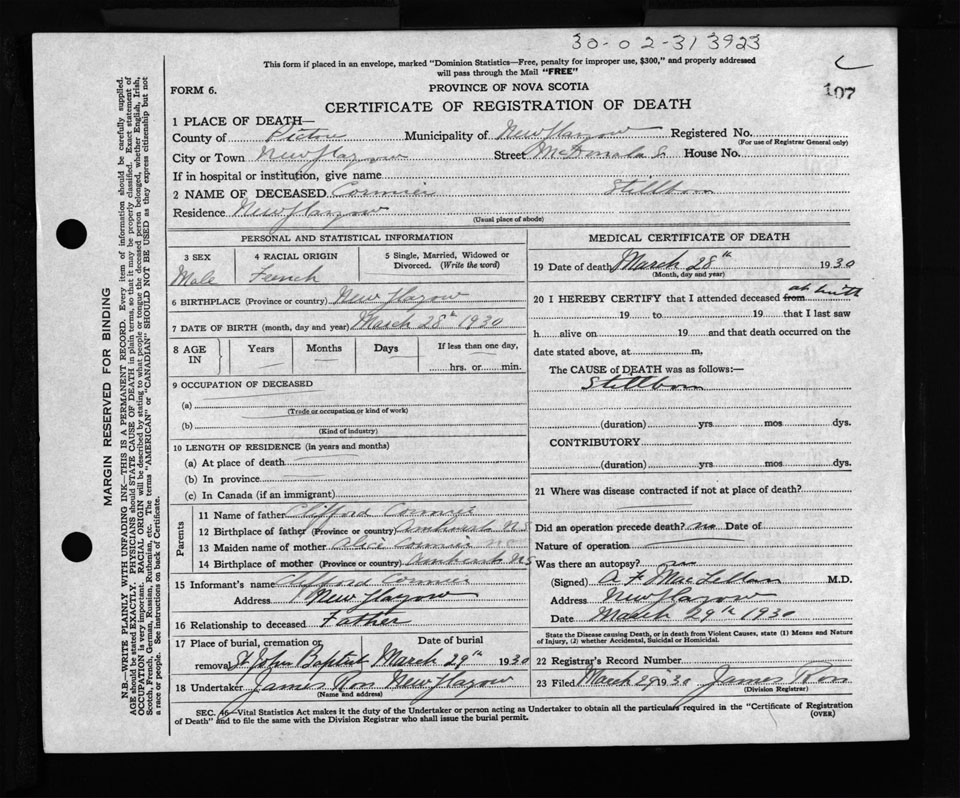 30-02-31 3923
This form if placed in an envelope, marked "Dominion Statistics—Free, penalty for improper use, $300," and properly addressed
will pass through the Mail "FREE"
FORM 6.
PROVINCE OF NOVA SCOTIA
107
CERTIFICATE OF REGISTRATION OF DEATH
1 PLACE OF DEATH—
County of Pictou Municipality of New Glasgow Registered No.
(For use of Registrar General only)
City or Town New Glasgow Street McDonald St House No.
If in hospital or institution, give name
2 NAME OF DECEASED Cormier Stillborn
Residence New Glasgow
(Usual place of abode)
PERSONAL AND STATISTICAL INFORMATION
3 SEX 4 RACIAL ORIGIN 5 Single, Married, Widowed or
Divorced. (Write the word)
Male French
6 BIRTHPLACE (Province or country) New Glasgow
7 DATE OF BIRTH (month, day and year) March 28th 1930
8 AGE IN Years Months Days If less than one day,
hrs. or min.
9 OCCUPATION OF DECEASED
(a)
(Trade or occupation or kind of work)
(b)
(Kind of industry)
10 LENGTH OF RESIDENCE (in years and months)
(a) At place of death
(b) In province
(c) In Canada (if an immigrant)
Parents
11 Name of father Clifford Cormier
12 Birthplace of father (Province or country) Amherst N S
13 Maiden name of mother Alice Cormier
14 Birthplace of mother (Province or country) Amherst N S
15 Informant's name Clifford Cormier
Address New Glasgow
16 Relationship to deceased Father
17 Place of burial, cremation or Date of burial
removal St John Baptist March 29th 1930
18 Undertaker James Ross New Glasgow
(Name and address)
MEDICAL CERTIFICATE OF DEATH
19 Date of death March 28th 1930
(Month, day and year)
20 I HEREBY CERTIFY that I attended deceased from at birth
19 to 19 that I last saw
h alive on 19 and that death occurred on
date stated above, at m.
The CAUSE of DEATH was as follows:—
Stillborn
(duration) yrs mos dys.
CONTRIBUTORY
(duration) yrs. mos. dys.
21 Where was disease contracted if not at place of death?
Did an operation precede death? no Date of
Nature of operation
Was there an autopsy? no
(Signed) A F MacLellan M.D.
Address New Glasgow
Date March 29th 1930
State the Disease causing Death, or in death from Violent Causes, state (1) Means and Nature
of Injury, (2) whether Accidental, Suicidal or Homicidal.
22 Registrar's Record Number
23 Filed March 29 1930 James Ross
(Division Registrar)
SEC. 46—Vital Statistics Act makes it the duty of the Undertaker or person acting as Undertaker to obtain all the particulars required in the "Certificate of Registration
of Death" and to file the same with the Division Registrar who shall issue the burial permit.
(OVER)
MARGIN RESERVED FOR BINDING
N.B.—WRITE PLAINLY WITH UNFADING INK—THIS IS A PERMANENT RECORD. Every item of information should be carefully supplied.
AGE should be stated EXACTLY. PHYSICIANS should STATE CAUSE OF DEATH in plain terms, so that it may be properly classified. Exact statement of
OCCUPATION is very important. RACIAL ORIGIN will be described by stating to what people or tongue the deceased person belonged, whether English, Irish,
Scotch, French, German, Russian, Ruthenian, etc. The terms "AMERICAN" or "CANADIAN" SHOULD NOT BE USED as they express citizenship but not
a race or people. See instructions on back of Certificate.